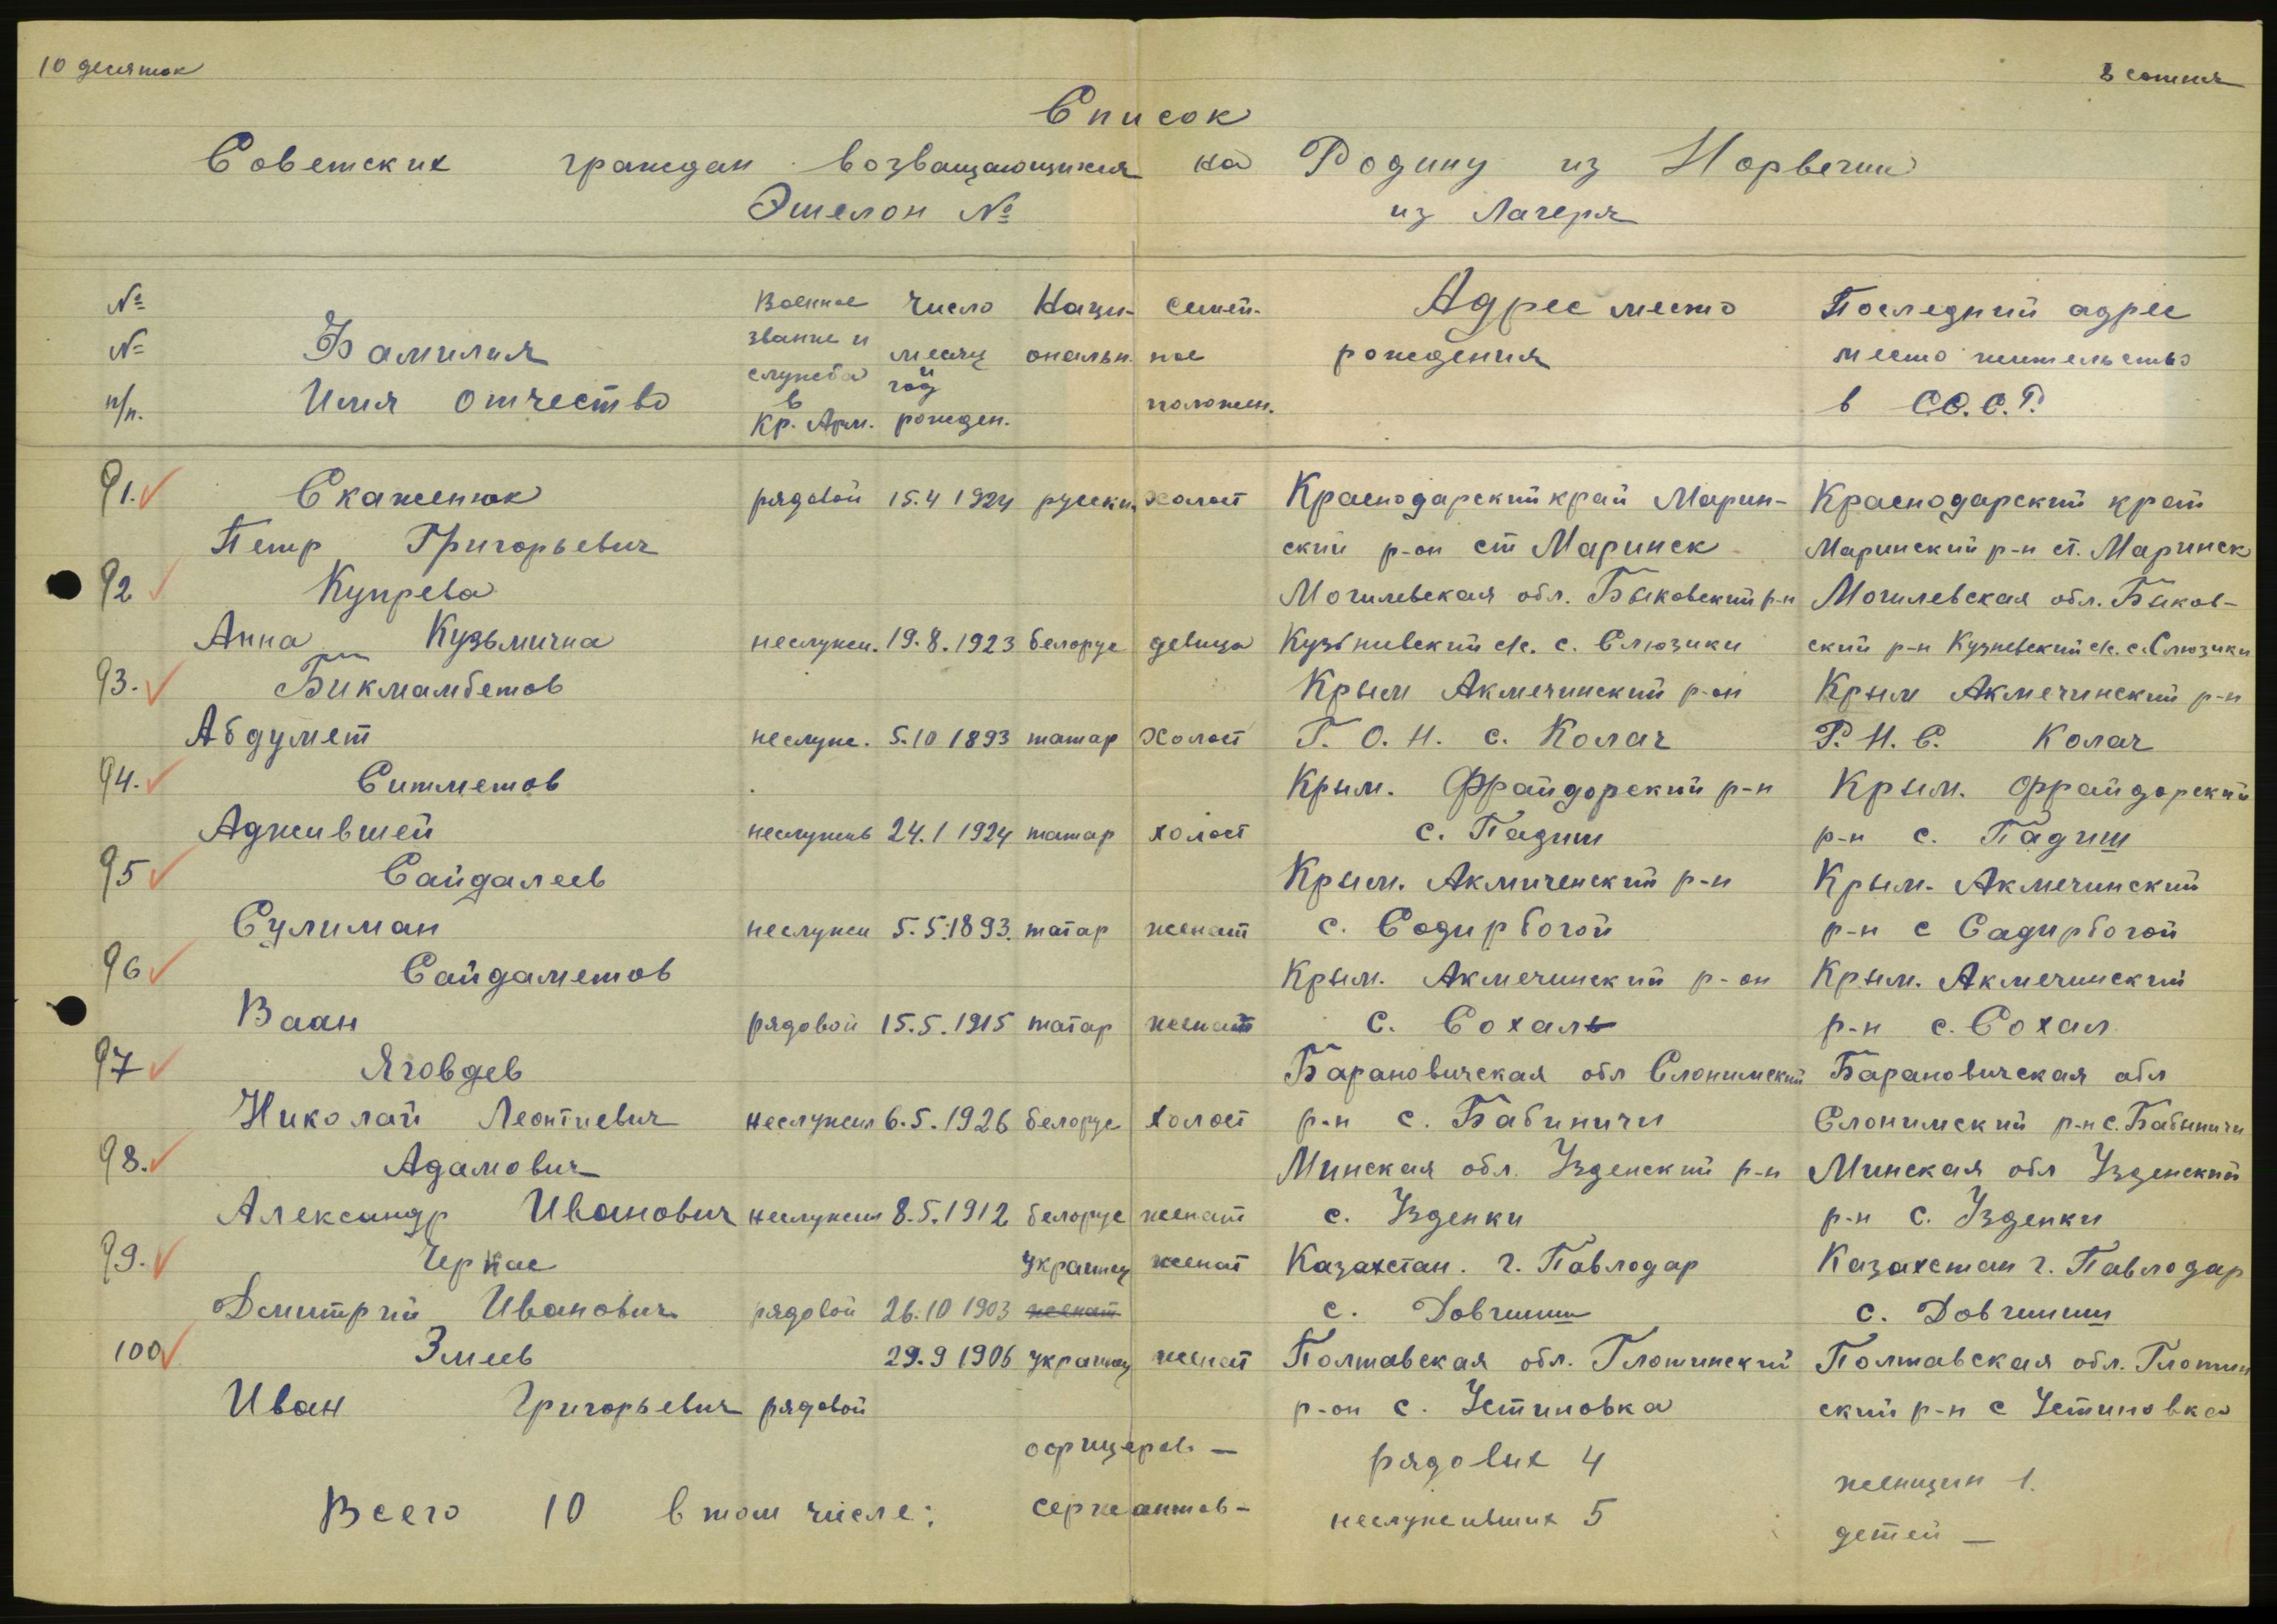 10 десяток 8 сотня
Список
Советских граждан возващающихся на Родину из Норвегии
Эшелон № из Лагеря
№ Военное Число Наци- Семей- Адрес место Последний адрес
№ Фамилия звание и месяц ональн. ное рождения место жительство
п/п. Имя отчество служба в Кр. Арм. и год рожден. положен. в СС.С.Р.
91. Скаженюк рядовой 15.4 1924 русский холост Краснодарский край Марин- Краснодарский край
Петр Григорьевич ский р-он ст Маринск Маринский р-н ст. Маринск
92 Купрева Могилевская обл. Быковский р-н Могилевская обл. Быков-
Анна Кузьмична неслужи. 19.8.1923 белорус девица Кузьнивский с/с. с. Слюзики ский р-н Кузневский с/с. с. Слюзики
93. Бикмамбетов Крым Акмечинский р-он Крым Акмечинский р-н
Абдумет неслуж. 5.10 1893 татар Холост Т. О. Н. с. Колач Р. Н. С. Колач
94. Ситметов Крым. Фрайдорский р-н Крым. Фрайдорский
Аджившей неслужив 24.1 1924 татар холост с. Падиш р-н с. Падиш
95 Сайдалеев Крым. Акмиченский р-н Крым. Акмечинский
Сулиман неслужи 5.5.1893. татар женат с. Содирбогой р-н с Садирбогой
96 Сайдаметов Крым. Акмечинский р-он Крым. Акмечинский
Ваан рядовой 15.5.1915 татар женат с. Сохаль р-н с. Сохал
97 Яговдев Барановичская обл Слонимский Барановичская обл
Николай Леонтиевич неслужил 6.5.1926 белорус холост р-н с. Бабиничи Слонимский р-н с. Бабиничи
98. Адамович Минская обл. Узденский р-н Минская обл Узденский
Александр Иванович неслужил 8.5.1912 белорус женат с. Узденки р-н с. Узденки
99. Черкас украинец женат Казахстан. г. Павлодар Казахстан г. Павлодар
Дмитрий Иванович рядовой 26.10 1903 женат с. Довгиши с. Довгиши
100 Змеев 29.9 1906 украинец женат Полтавская обл. Глотинский Полтавская обл. Глотин
Иван Григорьевич рядовой р-он с. Устиновка ский р-н с Устиновка
офицеров — рядовых 4 женщин 1.
Всего 10 в том числе: сержантов — неслуживших 5 детей —